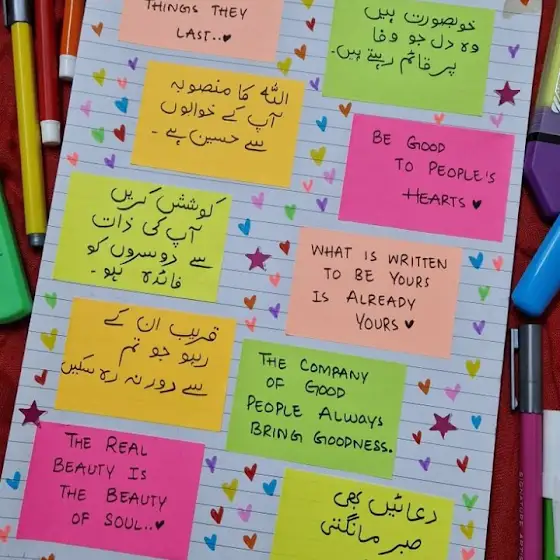 THINGS THEY
LAST..♥
خوبصورت ہیں
وہ دل جو وفا
پر قائم رہتے ہیں۔
اللہ کا منصوبہ
آپ کے خوابوں
سے حسین ہے۔
BE GOOD
TO PEOPLE'S
HEARTS ♥
کوشش کریں
آپ کی ذات
سے دوسروں کو
فائدہ ہو۔
WHAT IS WRITTEN
TO BE YOURS
IS ALREADY
YOURS ♥
قریب ان کے
رہو جو تم
سے دور نہ رہ سکیں
THE COMPANY
OF GOOD
PEOPLE ALWAYS
BRING GOODNESS.
THE REAL
BEAUTY IS
THE BEAUTY
OF SOUL..♥
دعائیں بھی
صبر مانگتی